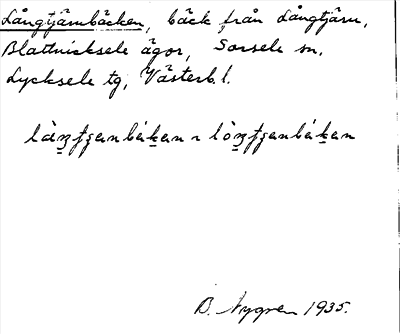 Långtjärnbäcken, bäck från Långtjärn,
Blattnicksele ägor, Sorsele sn.
Lycksele tg, Västerb. l.
B. Nygren 1935.